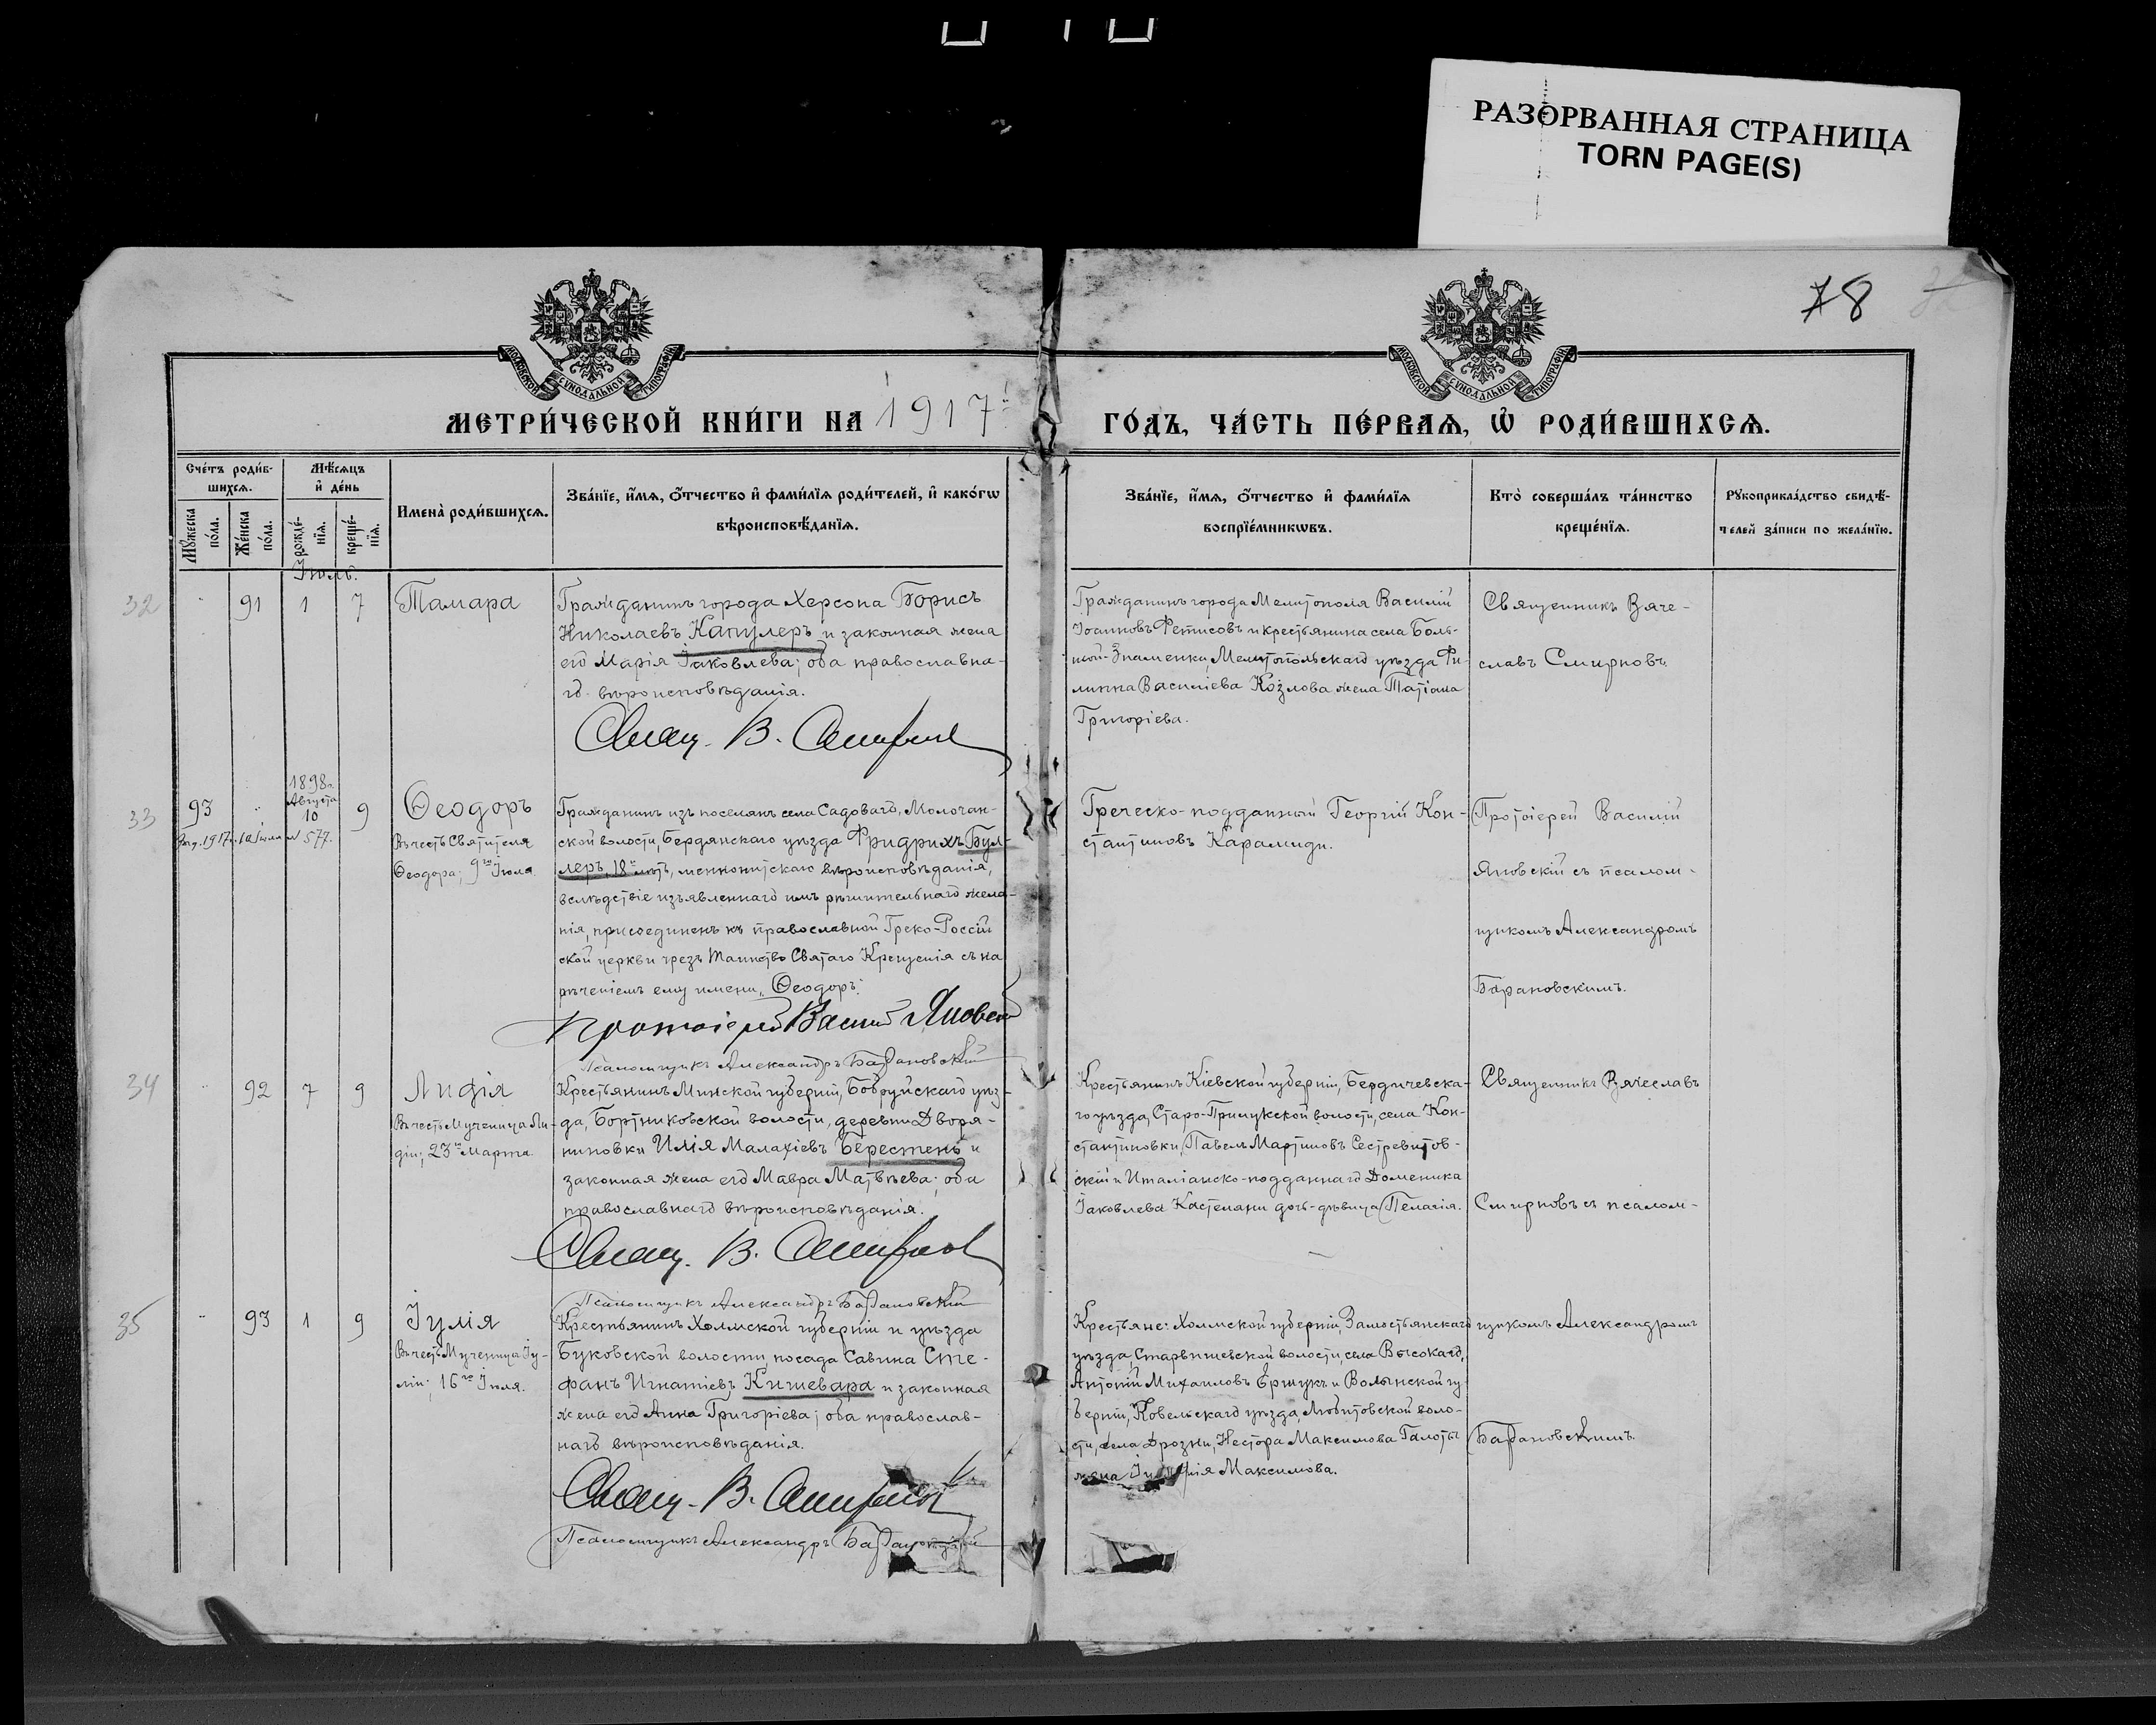 РАЗОРВАННАЯ СТРАНИЦА
TORN PAGE(S)
78
МОСКОВСКОЙ СѴНОДАЛЬНОЙ ТИПОГРАФІИ
МОСКОВСКОЙ СѴНОДАЛЬНОЙ ТИПОГРАФІИ
МЕТРИ́ЧЕСКОЙ КНИ́ГИ НА 1917й
ГО́ДЪ, ЧА́СТЬ ПЕ́РВАѦ, Ѽ РОДИ́ВШИХСѦ.
Сче́тъ роди́в-
шихсѧ.
Мꙋ́жеска
по́ла.
Же́нска
по́ла.
Мѣ́сѧцъ
и҆ де́нь
рожде́-
нїѧ.
креще́-
нїѧ.
Имена̀ роди́вшихсѧ.
Зва́нїе, и҆́мѧ, ѻ҆́тчество и҆ фами́лїѧ роди́телей, и҆ како́гѡ
вѣроисповѣ́данїѧ.
Зва́нїе, и҆́мѧ, ѻ҆́тчество и҆ фами́лїѧ
воспрїе́мникѡвъ.
Кто̀ соверша́лъ та́инство
креще́нїѧ.
Рꙋкоприкла́дство свидѣ́-
телей за́писи по жела́нїю.
Іюль.
32
91 1 7
Тамара
Гражданинъ города Херсона Борисъ
Николаевъ Капулеръ и законная жена
его Марія Іаковлева; оба православна-
го вѣроисповѣданія.
Свящ. В. Смирновъ
Гражданинъ города Мелитополя Василій
Іоанновъ Фетисовъ и крестьянина села Боль-
шой-Знаменки, Мелитопольскаго уѣзда Фи-
липпа Василіева Козлова жена Татіана
Григоріева.
Священникъ Вяче-
славъ Смирновъ.
33
93
1898г.
Августа
10
9
Ѳеодоръ
Въ честь Святителя
Ѳеодора; 9го Іюля.
Гражданинъ изъ поселянъ села Садоваго, Молочан-
ской волости, Бердянскаго уѣзда Фридрихъ Бул-
леръ, 18и лѣтъ, меннонитскаго вѣроисповѣданія,
вслѣдствіе изъявленнаго имъ рѣшительнаго жела-
нія, присоединенъ къ православной Греко-Россій-
ской церкви чрезъ Таинство Святаго Крещенія съ на-
рѣченіемъ ему имени „Ѳеодоръ".
Протоіерей Василій Яновскій
Псаломщикъ Александръ Барановскій
Греческо-подданный Георгій Кон-
стантиновъ Карамиди.
Протоіерей Василій
Яновскій съ псалом-
щикомъ Александромъ
Барановскимъ.
34
92 7 9
Лидія
Въ честь Мученицы Ли-
діи; 23го Марта.
Крестьянинъ Минской губерніи, Бобруйскаго уѣз-
да, Бортниковской волости, деревни Дворя-
ниновки Илія Малахіевъ Берестень и
законная жена его Мавра Матвѣева; оба
православнаго вѣроисповѣданія.
Свящ. В. Смирновъ
Псаломщикъ Александръ Барановскій
Крестьянинъ Кіевской губерніи, Бердичевска-
го уѣзда, Старо-Прилукской волости, села Кон-
стантиновки, Павелъ Мартиновъ Сестревитов-
скій и Италіанско-подданнаго Доменика
Іаковлева Кастелани дочь-дѣвица Пелагія.
Священникъ Вячеславъ
Смирновъ съ псалом-
35
93 1 9
Іулія
Въ честь Мученицы Іу-
ліи; 16го Іюля.
Крестьянинъ Холмской губерніи и уѣзда
Буковской волости, посада Савина Сте-
фанъ Игнатіевъ Кишевара и законная
жена его Анна Григоріева; оба православ-
наго вѣроисповѣданія.
Свящ. В. Смирновъ
Псаломщикъ Александръ Барановскій
Крестьяне: Холмской губерніи, Замостьянскаго
уѣзда, волости, села Высокаго,
Антоній Михаиловъ Ершукъ и Волынской гу-
берніи, Ковельскаго уѣзда, Любитовской воло-
сти, села Дрозни, Нестора Максимова Галоты
жена Максимова.
щикомъ Александромъ
Барановскимъ.